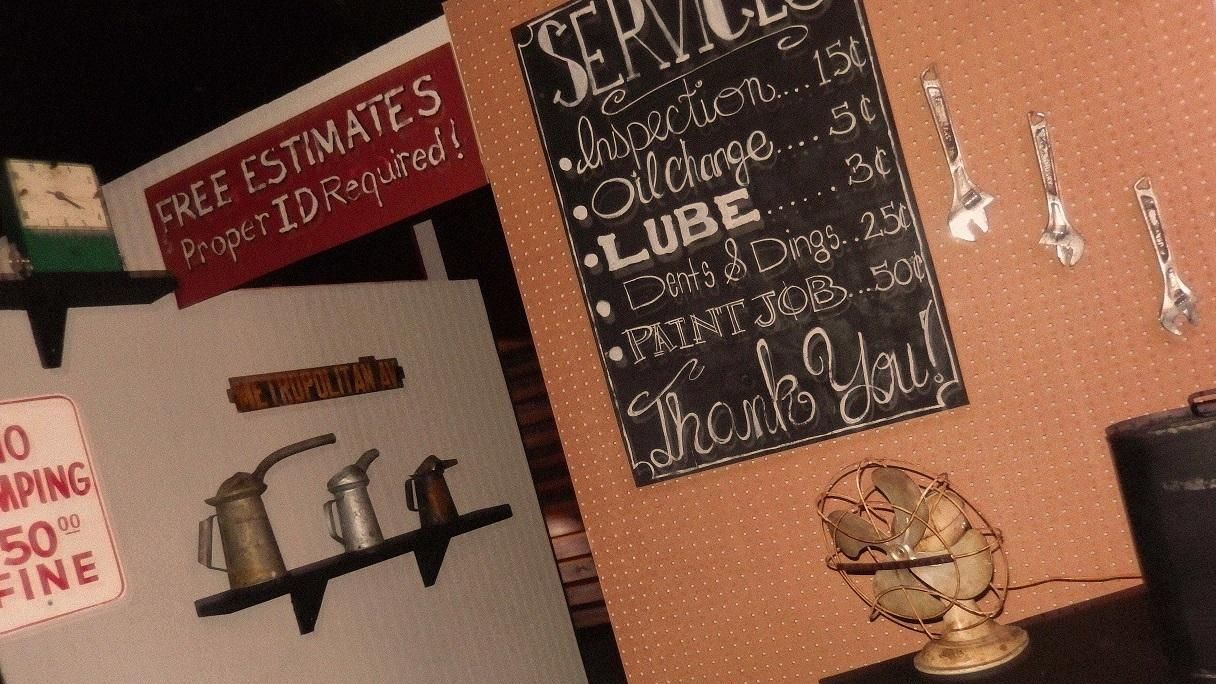 FREE ESTIMATES
Proper ID Required!
METROPOLITAN AV
NO
MPING
50⁰⁰
FINE
SERVICES
• Inspection.... 15¢
• Oil Change..... 5¢
• LUBE...... 3¢
• Dents & Dings.. 25¢
• PAINT JOB... 50¢
Thank You!